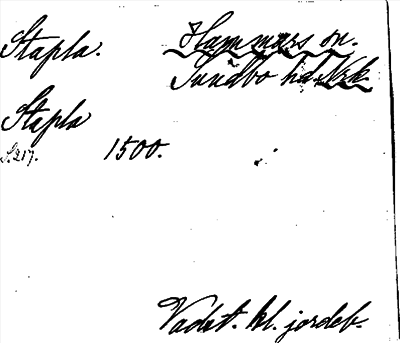 Stapla. Hammars sn.
Sundbo hd. Nrk.
Stapla
S. 217. 1500.
Vadst. kl. jordeb.